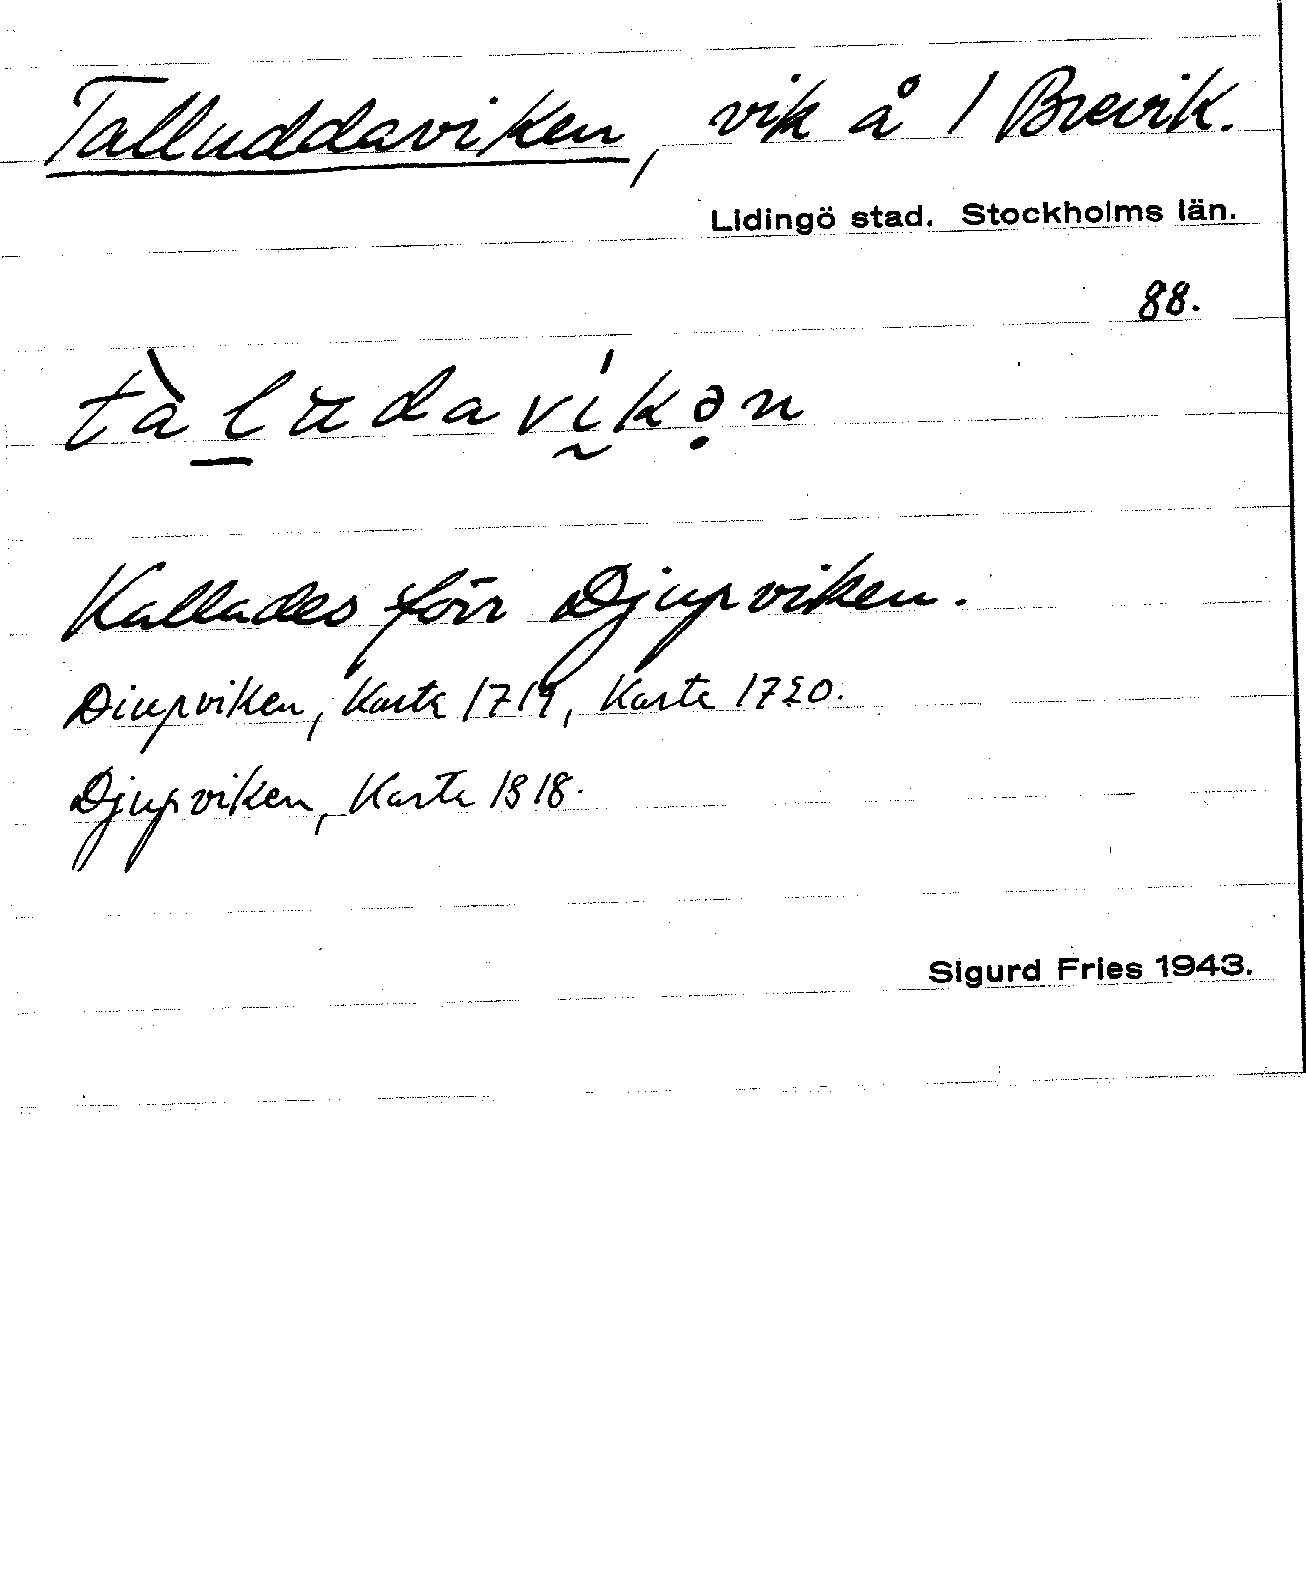 Talluddaviken, vik å 1 Brevik.
Lidingö stad. Stockholms län.
88.
tàl̲udavḭ́kə̣n
Kallades förr Djupviken.
Diupviken, Karta 1719, Karta 1720.
Djupviken, Karta 1818.
Sigurd Fries 1943.